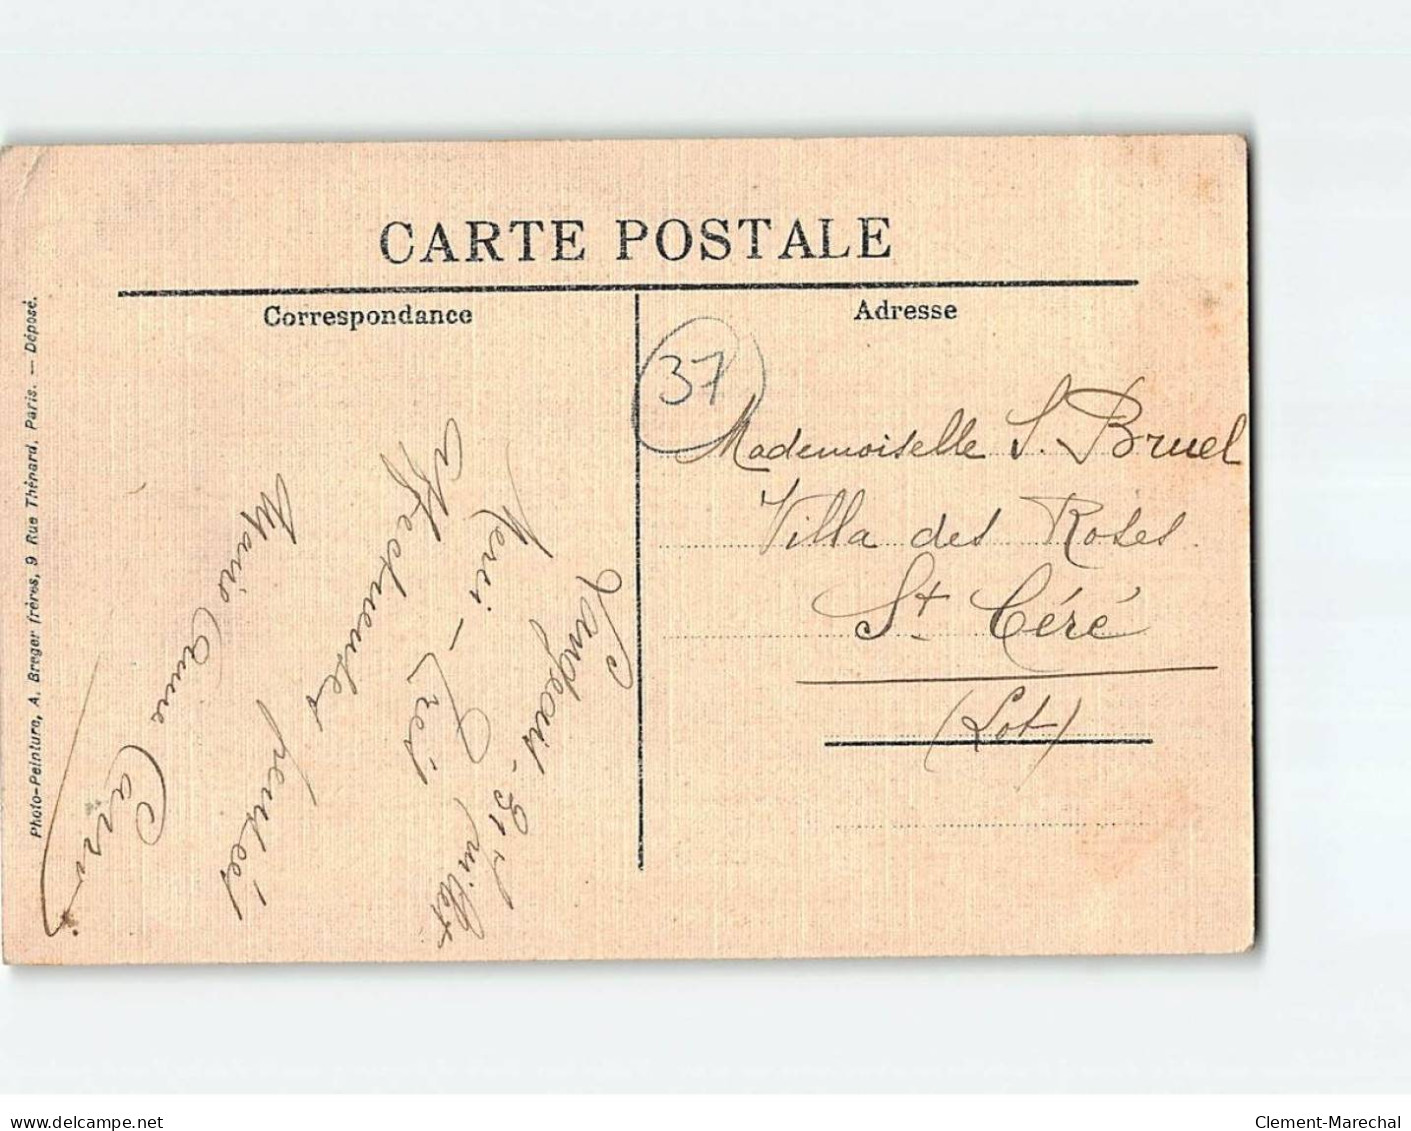 CARTE POSTALE
Correspondance
Adresse
37
Langeais. 31 Juillet
Merci - Très
affectueuses pensées
Marie Anne
Mademoiselle S. Bruel
Villa des Roses
St Céré
(Lot)
Photo-Peinture, A. Breger frères, 9 Rue Thénard, Paris. — Déposé.
www.delcampe.net
Clement-Marechal